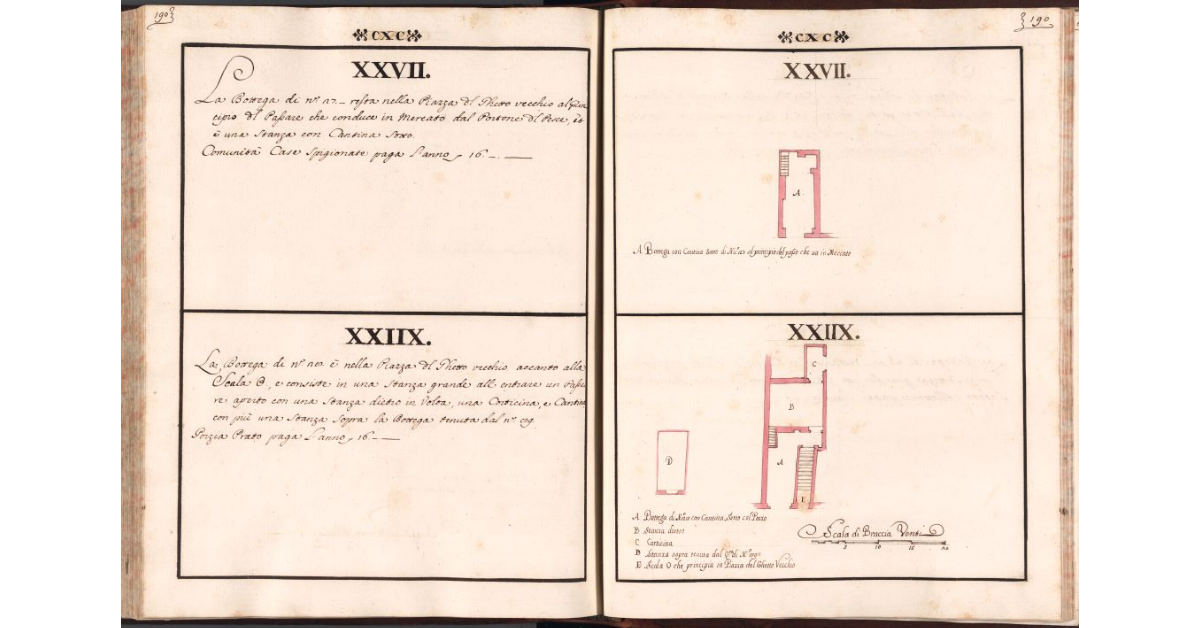 190
CXC
XXVII.
La Bottega di nº. 17 resta nella Piazza dl Ghetto vecchio al prin
cipio dl Passare che conduce in Mercato dal Portone dl Pesce, et
è una Stanza con Cantina Sotto.
Comunità Case Spigionate paga L'anno 16.
XXIIX.
La Bottega di nº. è nella Piazza dl Ghetto vecchio accanto alla
Scala O, e consiste in una Stanza grande all entrare un Passa
re aperto con una Stanza dietro in Volta, una Corticina, e Cantina
con più una Stanza Sopra la Bottega tenuta dal nº. 119.
Porzia Prato paga L'anno 16.
190
CXC
XXVII.
A
A Bottega con Cantina Sotto di Nº. al principio del passo che va in Mercato
XXIIX.
C
B
D
A
E
A Bottega di Nº. con Cantina Sotto col Pozzo
B Stanza dietro
C Corticina
D Stanza sopra tenuta dal Nº.
E Scala O che principia in Piazza del Ghetto Vecchio
Scala di Braccia Venti
5 10 15 20